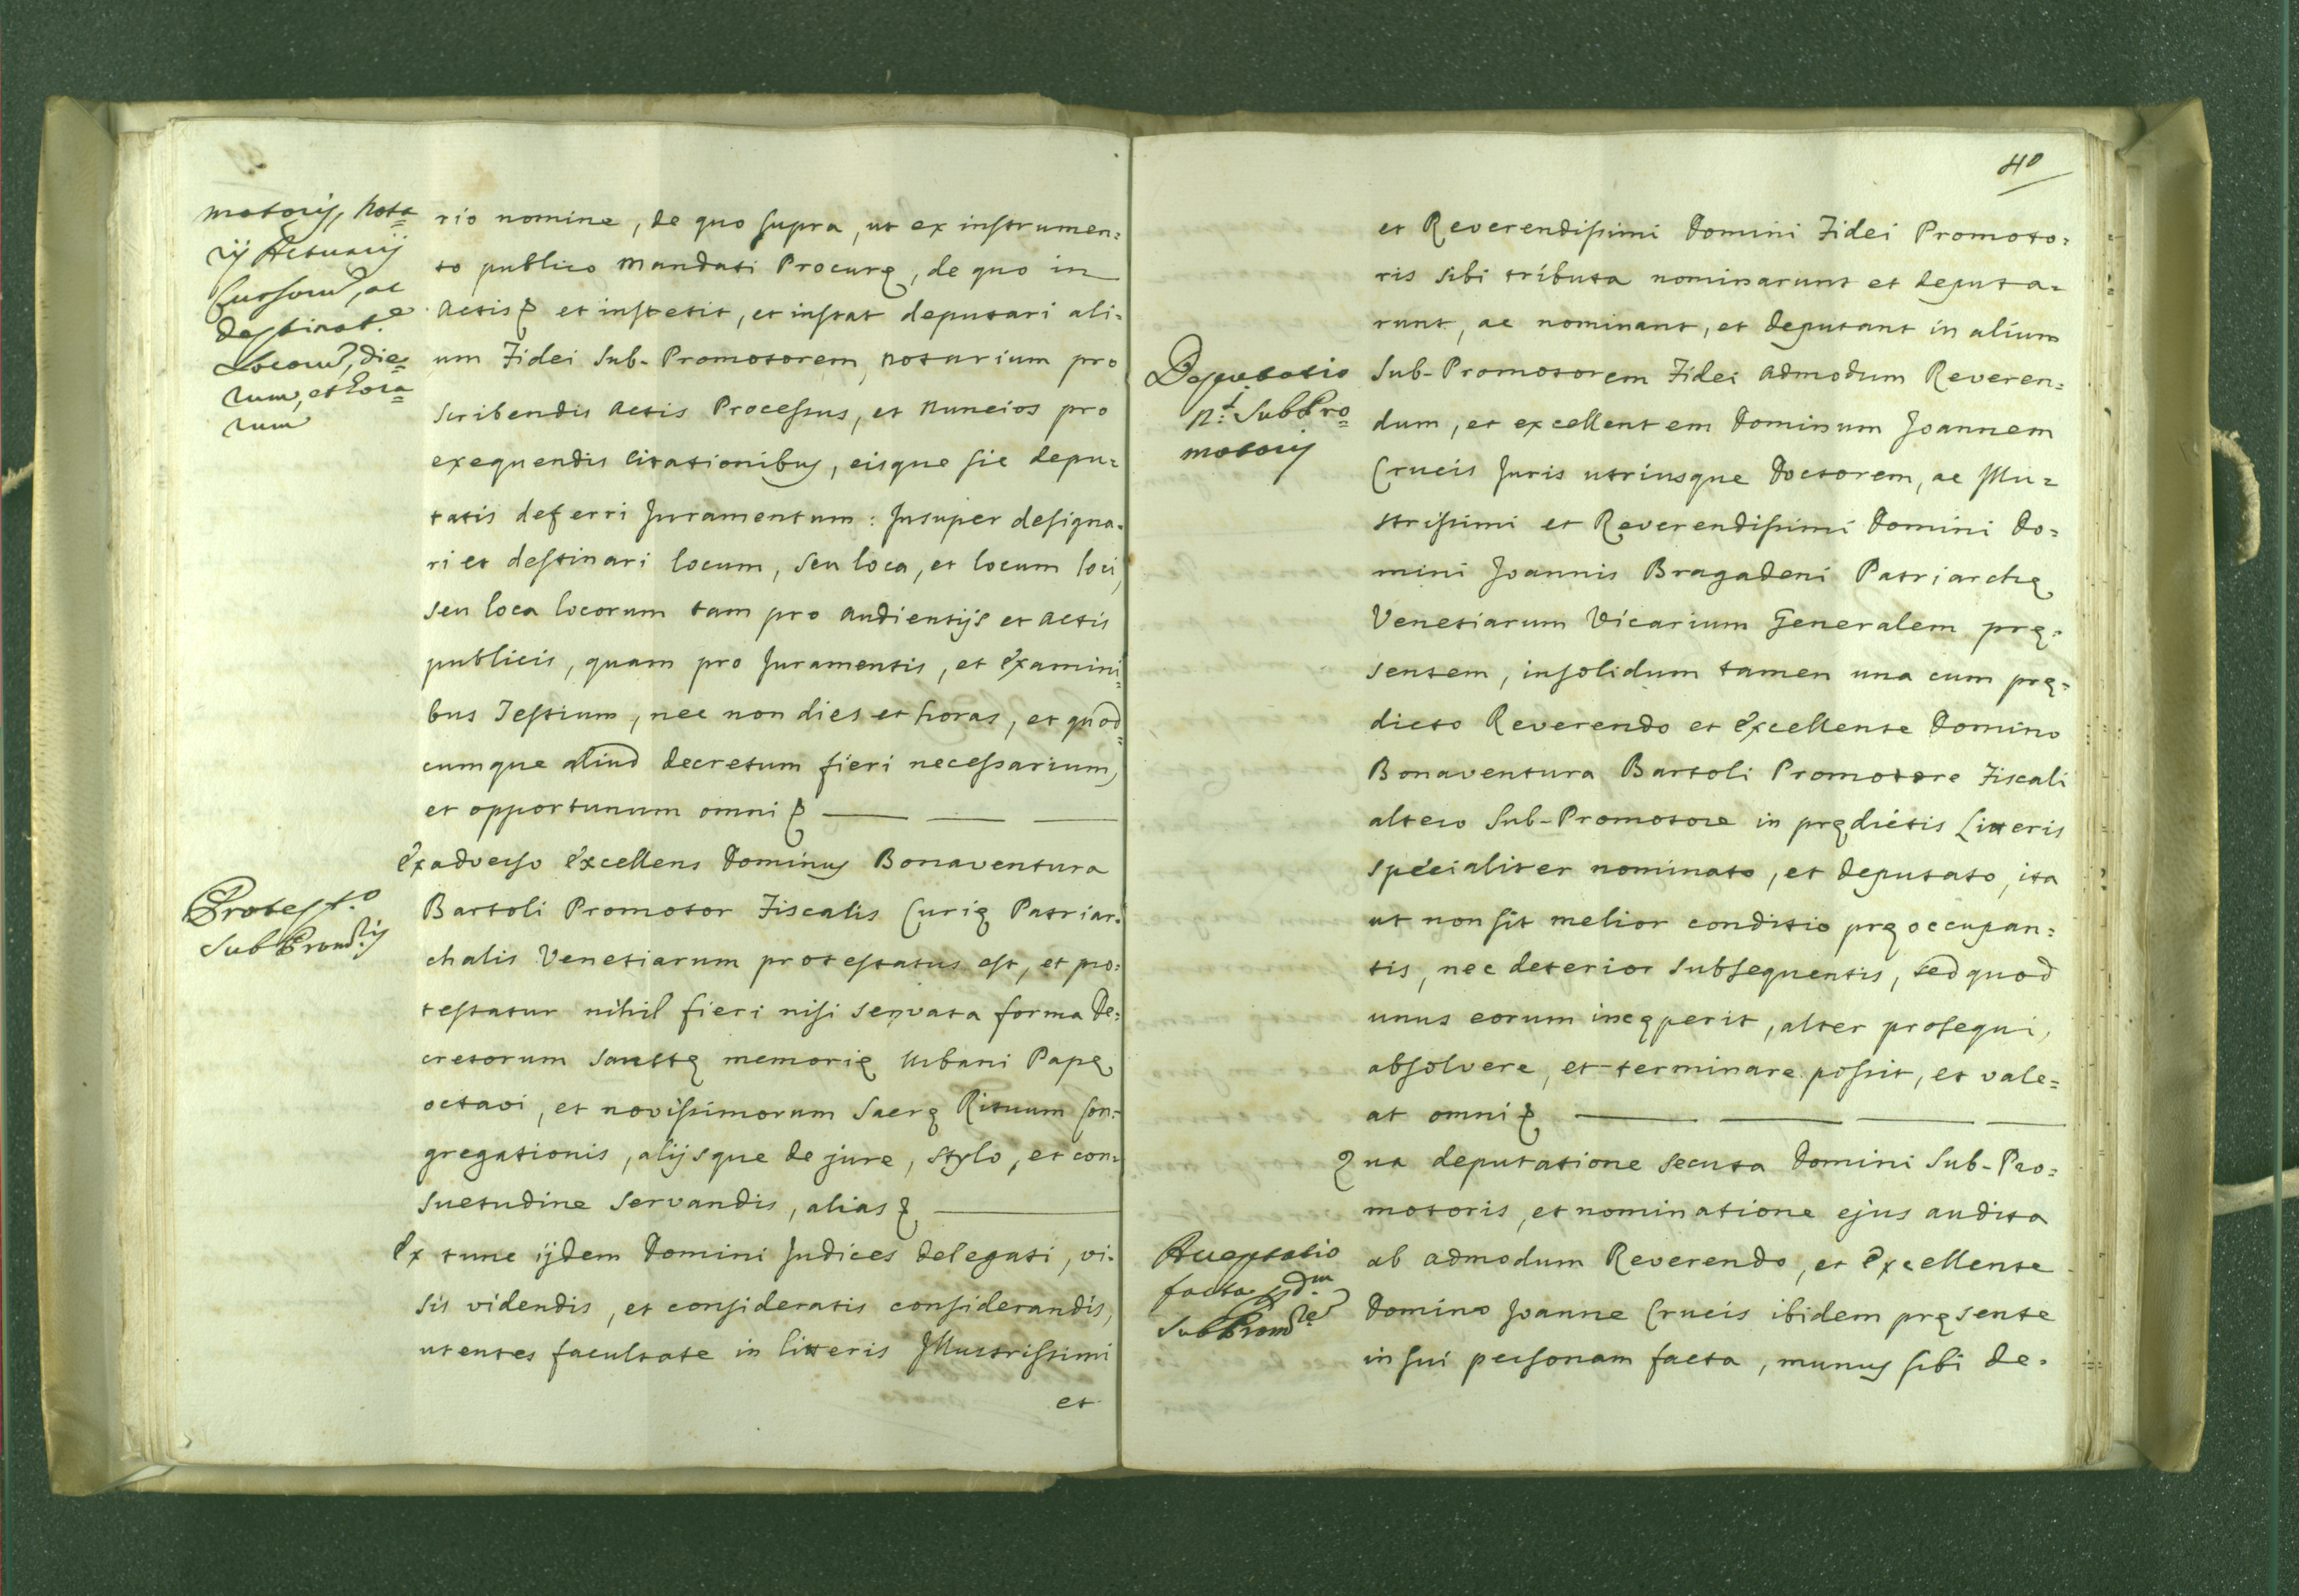 motoris, Nota=
rij Actuarij
Cursorum, ac
destinat.e
Locorum, die=
rum, et hora=
rum
rio nomine, de quo supra, ut ex instrumen=
to publico Mandati Procuræ, de quo in
Actis & et institit, et instat deputari ali=
um Fidei Sub-Promotorem, Notarium pro
scribendis Actis Processus, et Nuncios pro
exequendis citationibus, eisque sic depu=
tatis deferri Juramentum: Insuper designa=
ri et destinari locum, seu loca, et locum loci,
seu loca locorum tam pro audientijs et actis
publicis, quam pro Juramentis, et Examini=
bus Testium, nec non dies et horas, et quod=
cumque aliud decretum fieri necessarium,
et opportunum omni &
Protest.o
SubProm.ris
Ex adverso Excellens Dominus Bonaventura
Bartoli Promotor Fiscalis Curiæ Patriar=
chalis Venetiarum protestatus est, et pro=
testatur nihil fieri nisi servata forma De=
cretorum Sanctæ memoriæ Urbani Papæ
octavi, et novissimorum Sacræ Rituum Con=
gregationis, alijsque de jure, stylo, et con=
suetudine servandis, alias &
Ex tunc ijdem Domini Judices delegati, vi=
sis videndis, et consideratis considerandis,
utentes facultate in litteris Illustrissimi
et
40
et Reverendissimi Domini Fidei Promoto=
ris sibi tributa nominarunt et deputa=
runt, ac nominant, et deputant in alium
Deputatio
SubPro=
motoris
Sub-Promotorem Fidei admodum Reveren=
dum, et excellentem Dominum Joannem
Crucis Juris utriusque Doctorem, ac Illu=
strissimi et Reverendissimi Domini Do=
mini Joannis Bragadeni Patriarchæ
Venetiarum Vicarium Generalem præ=
sentem, insolidum tamen una cum præ=
dicto Reverendo et Excellente Domino
Bonaventura Bartoli Promotore Fiscali
altero Sub-Promotore in prædictis Litteris
specialiter nominato, et deputato, ita
ut non sit melior conditio præoccupan=
tis, nec deterior subsequentis, sed quod
unus eorum incæperit, alter prosequi,
absolvere, et terminare possit, et vale=
at omni &
Qua deputatione secuta Domini Sub-Pro=
motoris, et nominatione ejus audita
Acceptatio
facta
SubProm.re
ab admodum Reverendo, et Excellente
Domino Joanne Crucis ibidem præsente
in sui personam facta, munus sibi de=